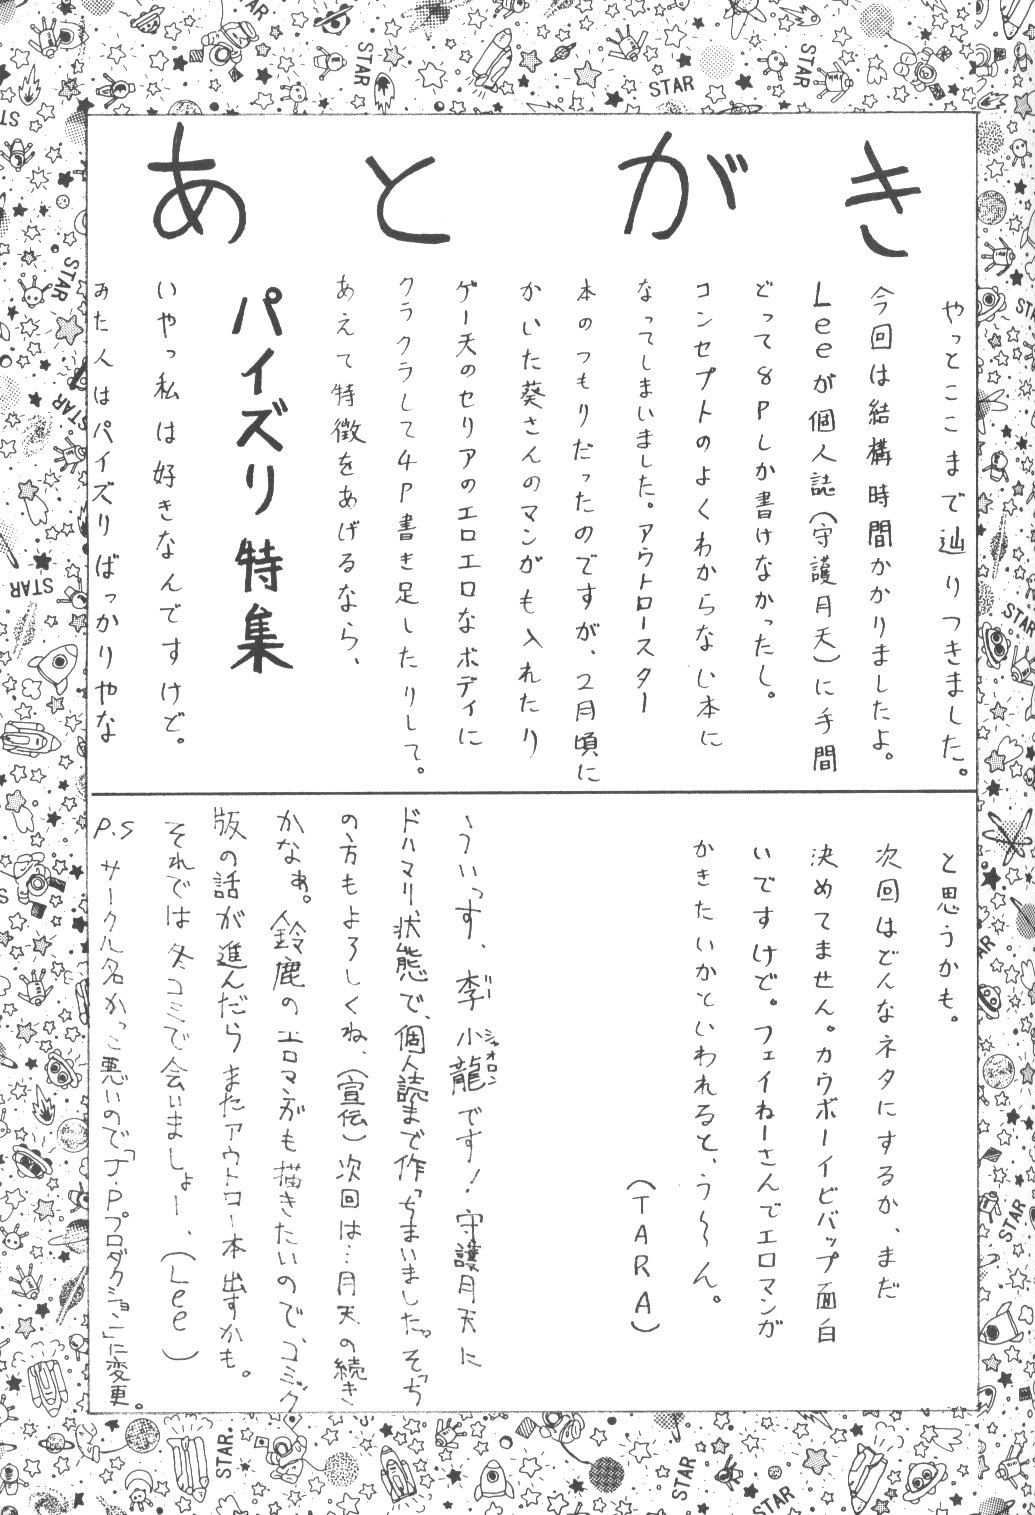 あとがき
やっとここまで辿りつきました。
今回は結構時間かかりましたよ。
Leeが個人誌(守護月天)に手間
どって8Pしか書けなかったし。
コンセプトのよくわからない本に
なってしまいました。アウトロースター
本のつもりだったのですが、2月頃に
かいた葵さんのマンガも入れたり
ゲー天のセリアのエロエロなボディに
クラクラして4P書き足したりして。
あえて特徴をあげるなら、
パイズリ特集
いやっ私は好きなんですけど。
みた人はパイズリばっかりやな
と思うかも。
次回はどんなネタにするか、まだ
決めてません。カウボーイビバップ面白
いですけど。フェイねーさんでエロマンガ
かきたいかといわれると、う〜ん。
(TARA)
ういっす、李小龍です!守護月天に
リー シャオロン
ドハマリ状態で、個人読まで作っちまいました。そっち
の方もよろしくね、(宣伝)次回は…月天の続き
かなぁ。鈴鹿のエロマンガも描きたいので、コミック
版の話が進んだらまたアウトロー本出すかも。
それでは冬コミで会いましょー、(Lee)
P.S サークル名かっこ悪いので「J.Pプロダクション」に変更。
STAR
STAR
STAR
STAR
STAR
STAR
STAR
STAR
STAR
STAR
STAR
STAR
STAR
STAR